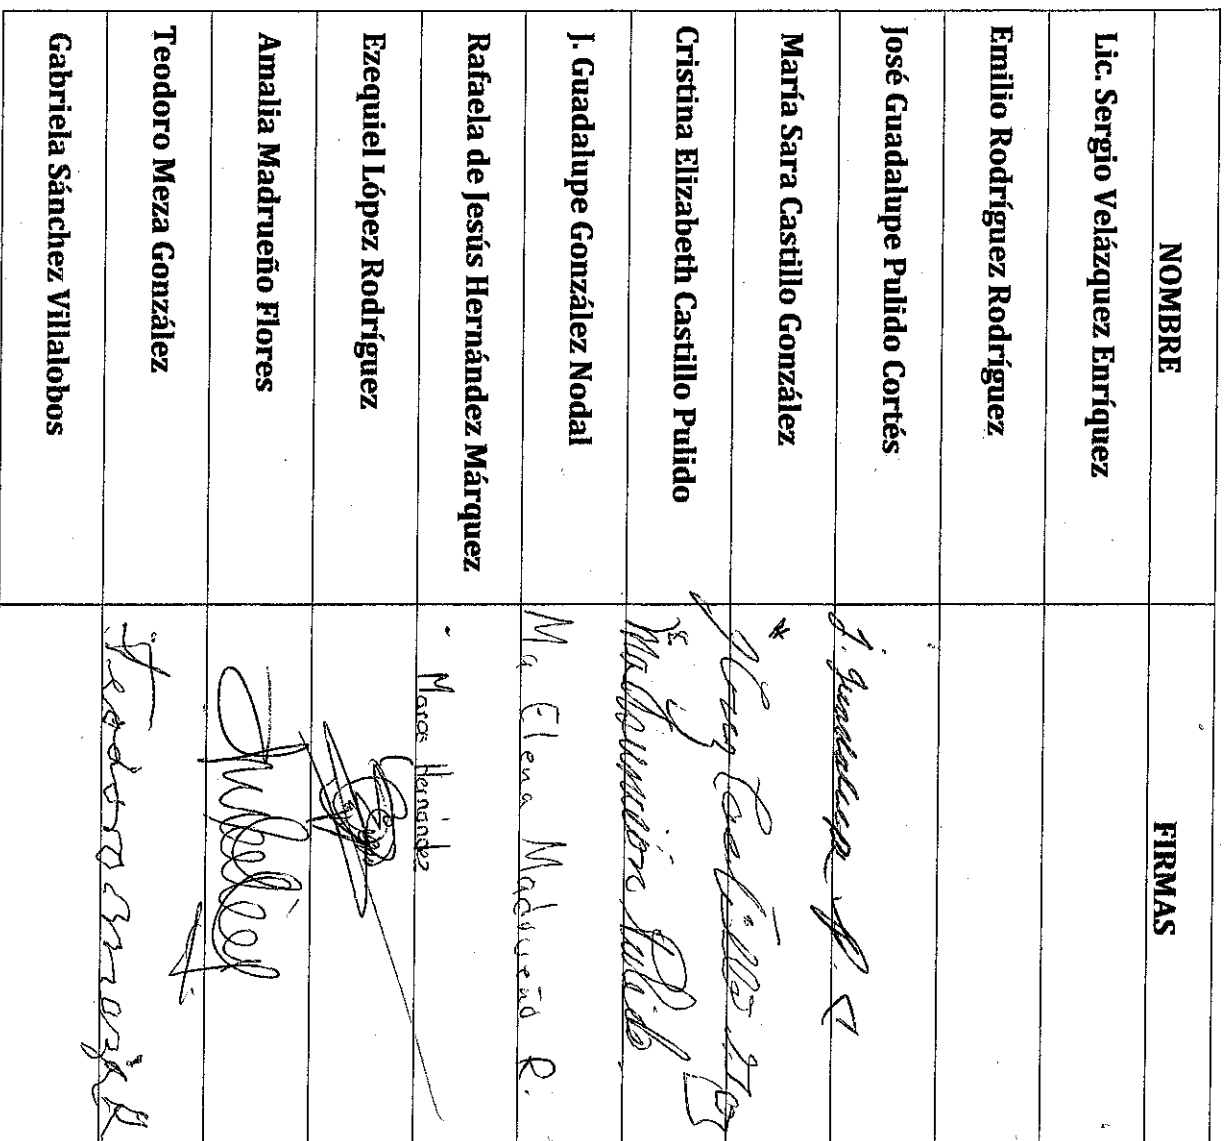 NOMBRE FIRMAS
Lic. Sergio Velázquez Enríquez
Emilio Rodríguez Rodríguez
José Guadalupe Pulido Cortés J. Guadalupe P. C
María Sara Castillo González Castillo
Cristina Elizabeth Castillo Pulido Pulido
J. Guadalupe González Nodal Ma Elena Madrueño R.
Rafaela de Jesús Hernández Márquez Marcos Hernández
Ezequiel López Rodríguez
Amalia Madrueño Flores
Teodoro Meza González Teodoro
Gabriela Sánchez Villalobos